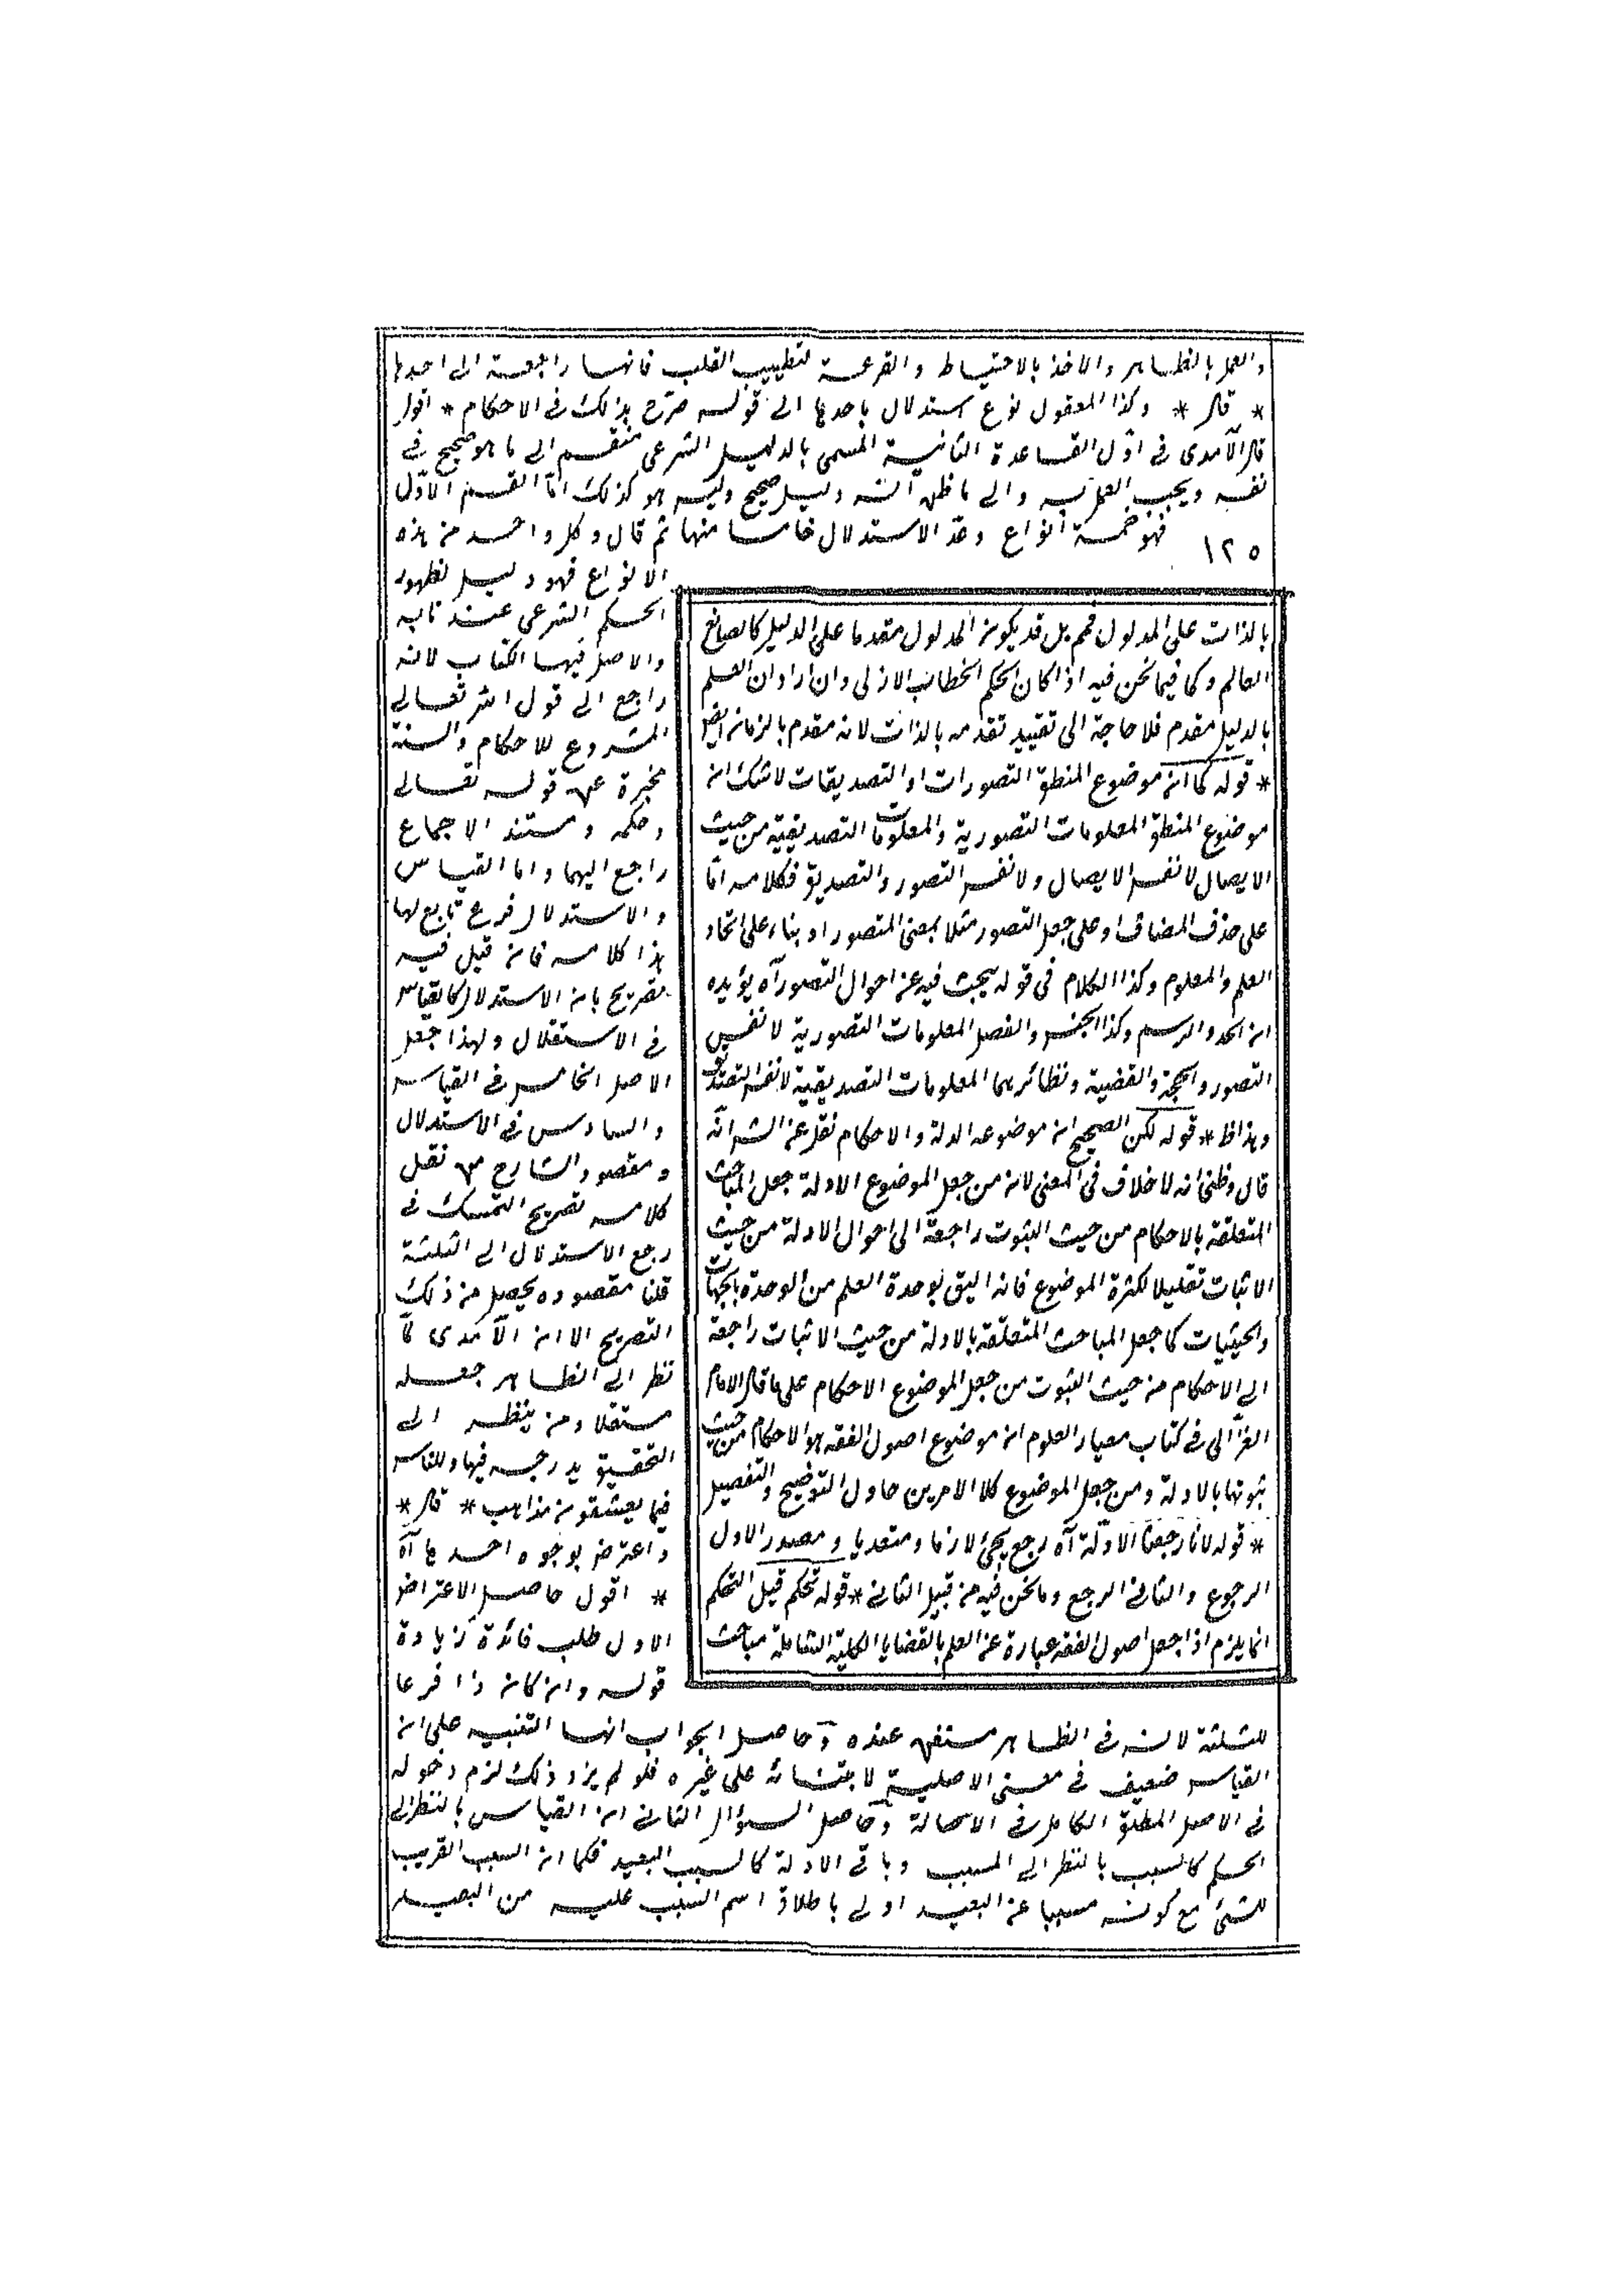 والعمل بالظاهر والاخذ بالاحتياط والقرعة لتطييب القلب فانها راجعة الى احدها
* قال * وكذا المعقول نوع استدلال باحدها الى قوله صرّح بذلك فى الاحكام * اقول
قال الآمدى فى اوّل القاعدة الثانية المسمى بالدليل الشرعى منقسم الى ما هو صحيح فى
نفسه ويجب العمل به والى ما ظن انّه دليل صحيح وليس هو كذلك امّا القسم الاوّل
١٢٥ فهو خمسة انواع وعدّ الاستدلال خامسا منها ثمّ قال وكل واحد من هذه
الانواع فهو دليل لظهور
الحكم الشرعى عنده نابه
والاصل فيها الكتاب لانه
راجع الى قول الله تعالى
المشروع للاحكام والسنة
مخبرة عن قوله تعالى
وحكمه ومستند الاجماع
راجع اليهما واما القياس
والاستدلال فرع تابع لها
هذا كلامه فان قيل فيه
تصريح بان الاستدلال كالقياس
فى الاستقلال ولهذا جعل
الاصل الخامس فى القياس
والسادس فى الاستدلال
ومقصود الشارح من نقل
كلامه تصريح التمسك فى
رجع الاستدلال الى الثلثة
قلنا مقصوده يحصل من ذلك
التصريح الا ان الآمدى لمّا
نظر الى الظاهر جعله
مستقلا ومن ينظر الى
التحقيق يدرجه فيها وللناس
فيما يعشقون مذاهب * قال *
واعترض بوجوه احدها آه
* اقول حاصل الاعتراض
الاول طلب فائدة زيادة
قوله وان كان ذا فرعا
للثلثة لانه فى الظاهر مستغن عنده وحاصل الجواب انها التنبيه على ان
القياس ضعيف فى معنى الاصلية لابتنائه على غيره فلو لم يزد ذلك لزم دخوله
فى الاصل المطلق الكامل فى الاصالة وحاصل السؤال الثانى ان القياس بالنظر الى
الحكم كالسبب بالنظر الى المسبب وباقى الادلة كالسبب البعيد فكما ان السبب القريب
للشئ مع كونه مسببا عن البعيد اولى باطلاق اسم السبب عليه من البعيد
بالذات على المدلول فمم بل قد يكون المدلول مقدما على الدليل كالصانع
العالم وكما فيما نحن فيه اذا كان الحكم الخطاب الازلى وان اراد ان العلم
بالدليل مقدم فلا حاجة الى تقييد تقدمه بالذات لانه مقدم بالزمان ايض
* قوله كما ان موضوع المنطق التصورات او التصديقات لاشك ان
موضوع المنطق المعلومات التصورية والمعلومات التصديقية من حيث
الايصال لا نفس الايصال ولا نفس التصور والتصديق فكلامه امّا
على حذف المضاف او على جعل التصور مثلا بمعنى المتصور او بناء على اتحاد
العلم والمعلوم وكذا الكلام فى قوله يبحث فيه عن احوال التصور آه يؤيده
ان الحد والرسم وكذا الجنس والفصل المعلومات التصورية لا نفس
التصور والحجة والقضية ونظائرهما المعلومات التصديقية لا نفس التصديق
وهذا ظ * قوله لكن الصحيح ان موضوعه الدلة والاحكام نقل عن الش انّه
قال وظنى انه لا خلاف فى المعنى لان من جعل الموضوع الادلة جعل المباحث
المتعلقة بالاحكام من حيث الثبوت راجعة الى احوال الادلة من حيث
الاثبات تقليلا لكثرة الموضوع فانه اليق بوحدة العلم من الوحدة بالجهات
والحيثيات كما جعل المباحث المتعلقة بالادلة من حيث الاثبات راجعة
الى الاحكام من حيث الثبوت من جعل الموضوع الاحكام على ما قال الامام
الغزّالى فى كتاب معيار العلوم ان موضوع اصول الفقه هو الاحكام من حيث
ثبوتها بالادلة ومن جعل الموضوع كلا الامرين حاول التوضيح والتفصيل
* قوله لانا رجعنا الادلّة آه رجع يجئ لازما ومتعديا ومصدر الاول
الرجوع والثانى الرجع وما نحن فيه من قبيل الثانى * قوله تحكم قيل التحكم
انما يلزم اذا جعل اصول الفقه عبارة عن العلم بالقضايا الكلية الشاملة مباحث